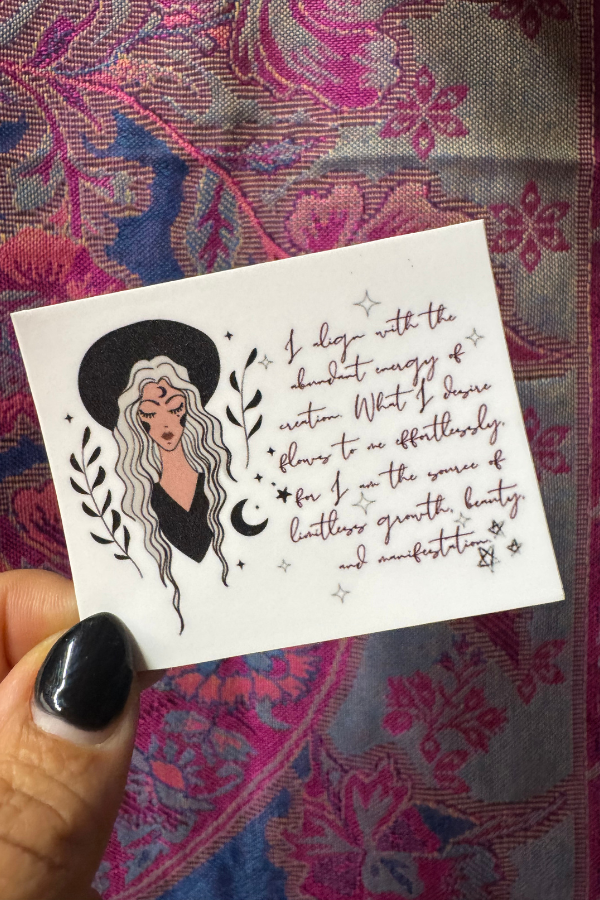 I align with the
abundant energy of
creation. What I desire
flows to me effortlessly,
for I am the source of
limitless growth, beauty,
and manifestation.